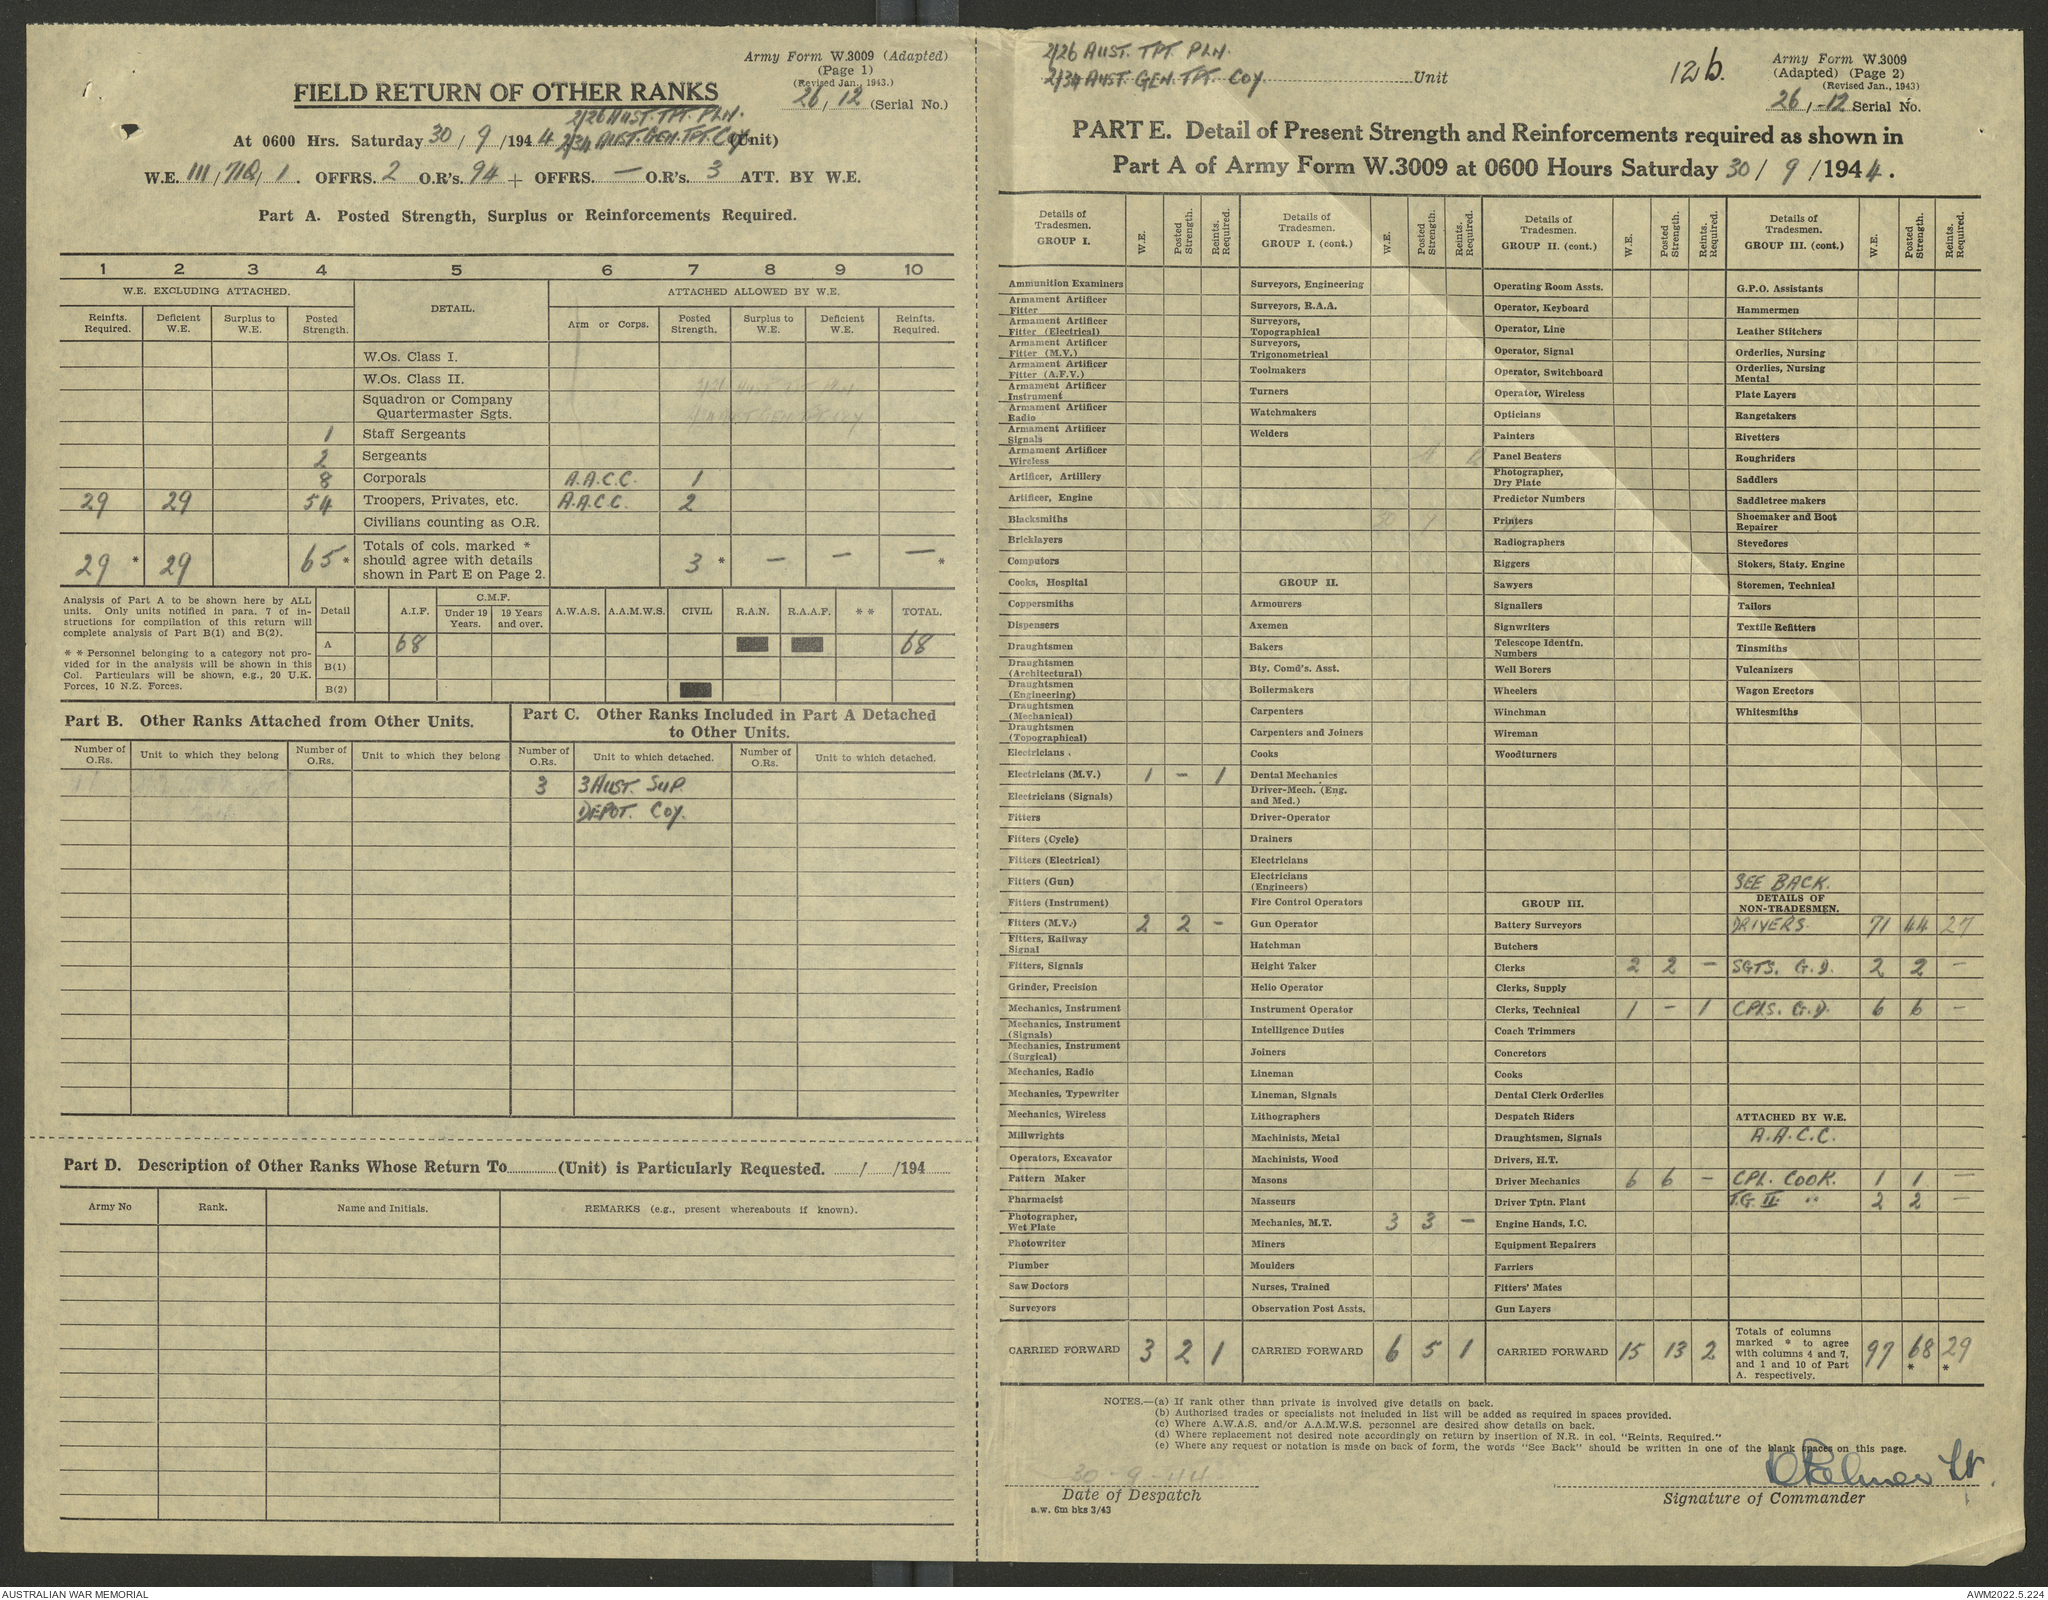 Army Form W.3009 (Adapted)
(Page 1)
(Revised Jan., 1943.)
26, 12 (Serial No.)
FIELD RETURN OF OTHER RANKS
2/26 AUST. TPT. PLN.
At 0600 Hrs. Saturday 30 / 9 /1944 2/34 AUST. GEN. TPT. COY. (Unit)
W.E. III/71Q/1. OFFRS. 2 O.R's. 94 + OFFRS. — O.R's. 3 ATT. BY W.E.
Part A. Posted Strength, Surplus or Reinforcements Required.
1 2 3 4 5 6 7 8 9 10
W.E. EXCLUDING ATTACHED. DETAIL. ATTACHED ALLOWED BY W.E.
Reinfts. Required. Deficient W.E. Surplus to W.E. Posted Strength. Arm or Corps. Posted Strength. Surplus to W.E. Deficient W.E. Reinfts. Required.
W.Os. Class I.
W.Os. Class II.
Squadron or Company
Quartermaster Sgts.
1 Staff Sergeants
2 Sergeants
8 Corporals A.A.C.C. 1
29 29 54 Troopers, Privates, etc. A.A.C.C. 2
Civilians counting as O.R.
29 * 29 65 * Totals of cols. marked * should agree with details shown in Part E on Page 2. 3 * — — — *
Analysis of Part A to be shown here by ALL
units. Only units notified in para. 7 of in-
structions for compilation of this return will
complete analysis of Part B(1) and B(2).
* * Personnel belonging to a category not pro-
vided for in the analysis will be shown in this
Col. Particulars will be shown, e.g., 20 U.K.
Forces, 10 N.Z. Forces.
Detail A.I.F. C.M.F. Under 19 Years. 19 Years and over. A.W.A.S. A.A.M.W.S. CIVIL R.A.N. R.A.A.F. * * TOTAL.
A 68 68
B(1)
B(2)
Part B. Other Ranks Attached from Other Units.
Number of O.Rs. Unit to which they belong Number of O.Rs. Unit to which they belong
Part C. Other Ranks Included in Part A Detached
to Other Units.
Number of O.Rs. Unit to which detached. Number of O.Rs. Unit to which detached.
3 3 AUST. SUP.
DEPOT. COY.
Part D. Description of Other Ranks Whose Return To............(Unit) is Particularly Requested. ....../....../194......
Army No Rank. Name and Initials. REMARKS (e.g., present whereabouts if known).
2/26 AUST. TPT. PLN.
2/34 AUST. GEN. TPT. COY. Unit
12b.
Army Form W.3009
(Adapted) (Page 2)
(Revised Jan., 1943)
26/-12 Serial No.
PART E. Detail of Present Strength and Reinforcements required as shown in
Part A of Army Form W.3009 at 0600 Hours Saturday 30 / 9 /1944.
Details of Tradesmen. GROUP I. W.E. Posted Strength. Reints. Required.
Ammunition Examiners
Armament Artificer Fitter
Armament Artificer Fitter (Electrical)
Armament Artificer Fitter (M.V.)
Armament Artificer Fitter (A.F.V.)
Armament Artificer Instrument
Armament Artificer Radio
Armament Artificer Signals
Armament Artificer Wireless
Artificer, Artillery
Artificer, Engine
Blacksmiths
Bricklayers
Computors
Cooks, Hospital
Coppersmiths
Dispensers
Draughtsmen
Draughtsmen (Architectural)
Draughtsmen (Engineering)
Draughtsmen (Mechanical)
Draughtsmen (Topographical)
Electricians .
Electricians (M.V.) 1 — 1
Electricians (Signals)
Fitters
Fitters (Cycle)
Fitters (Electrical)
Fitters (Gun)
Fitters (Instrument)
Fitters (M.V.) 2 2 —
Fitters, Railway Signal
Fitters, Signals
Grinder, Precision
Mechanics, Instrument
Mechanics, Instrument (Signals)
Mechanics, Instrument (Surgical)
Mechanics, Radio
Mechanics, Typewriter
Mechanics, Wireless
Millwrights
Operators, Excavator
Pattern Maker
Pharmacist
Photographer, Wet Plate
Photowriter
Plumber
Saw Doctors
Surveyors
CARRIED FORWARD 3 2 1
Details of Tradesmen. GROUP I. (cont.) W.E. Posted Strength. Reints. Required.
Surveyors, Engineering
Surveyors, R.A.A.
Surveyors, Topographical
Surveyors, Trigonometrical
Toolmakers
Turners
Watchmakers
Welders
GROUP II.
Armourers
Axemen
Bakers
Bty. Comd's. Asst.
Boilermakers
Carpenters
Carpenters and Joiners
Cooks
Dental Mechanics
Driver-Mech. (Eng. and Med.)
Driver-Operator
Drainers
Electricians
Electricians (Engineers)
Fire Control Operators
Gun Operator
Hatchman
Height Taker
Helio Operator
Instrument Operator
Intelligence Duties
Joiners
Lineman
Lineman, Signals
Lithographers
Machinists, Metal
Machinists, Wood
Masons
Masseurs
Mechanics, M.T. 3 3 —
Miners
Moulders
Nurses, Trained
Observation Post Assts.
CARRIED FORWARD 6 5 1
Details of Tradesmen. GROUP II. (cont.) W.E. Posted Strength. Reints. Required.
Operating Room Assts.
Operator, Keyboard
Operator, Line
Operator, Signal
Operator, Switchboard
Operator, Wireless
Opticians
Painters
Panel Beaters
Photographer, Dry Plate
Predictor Numbers
Printers
Radiographers
Riggers
Sawyers
Signallers
Signwriters
Telescope Identfn. Numbers
Well Borers
Wheelers
Winchman
Wireman
Woodturners
GROUP III.
Battery Surveyors
Butchers
Clerks 2 2 —
Clerks, Supply
Clerks, Technical 1 — 1
Coach Trimmers
Concretors
Cooks
Dental Clerk Orderlies
Despatch Riders
Draughtsmen, Signals
Drivers, H.T.
Driver Mechanics 6 6 —
Driver Tptn. Plant
Engine Hands, I.C.
Equipment Repairers
Farriers
Fitters' Mates
Gun Layers
CARRIED FORWARD 15 13 2
Details of Tradesmen. GROUP III. (cont.) W.E. Posted Strength. Reints. Required.
G.P.O. Assistants
Hammermen
Leather Stitchers
Orderlies, Nursing
Orderlies, Nursing Mental
Plate Layers
Rangetakers
Rivetters
Roughriders
Saddlers
Saddletree makers
Shoemaker and Boot Repairer
Stevedores
Stokers, Staty. Engine
Storemen, Technical
Tailors
Textile Refitters
Tinsmiths
Vulcanizers
Wagon Erectors
Whitesmiths
SEE BACK.
DETAILS OF NON-TRADESMEN.
DRIVERS. 71 44 27
SGTS. G.D. 2 2 —
CPLS. G.D. 6 6 —
ATTACHED BY W.E.
A.A.C.C.
CPL. COOK. 1 1 —
T.G. II. " 2 2 —
Totals of columns marked * to agree with columns 4 and 7, and 1 and 10 of Part A. respectively. 97 68 * 29 *
NOTES.—(a) If rank other than private is involved give details on back.
(b) Authorised trades or specialists not included in list will be added as required in spaces provided.
(c) Where A.W.A.S. and/or A.A.M.W.S. personnel are desired show details on back.
(d) Where replacement not desired note accordingly on return by insertion of N.R. in col. "Reints. Required."
(e) Where any request or notation is made on back of form, the words "See Back" should be written in one of the blank spaces on this page.
30-9-44
Date of Despatch
a.w. 6m bks 3/43
Palmer Lt.
Signature of Commander
AUSTRALIAN WAR MEMORIAL
AWM2022.5.224